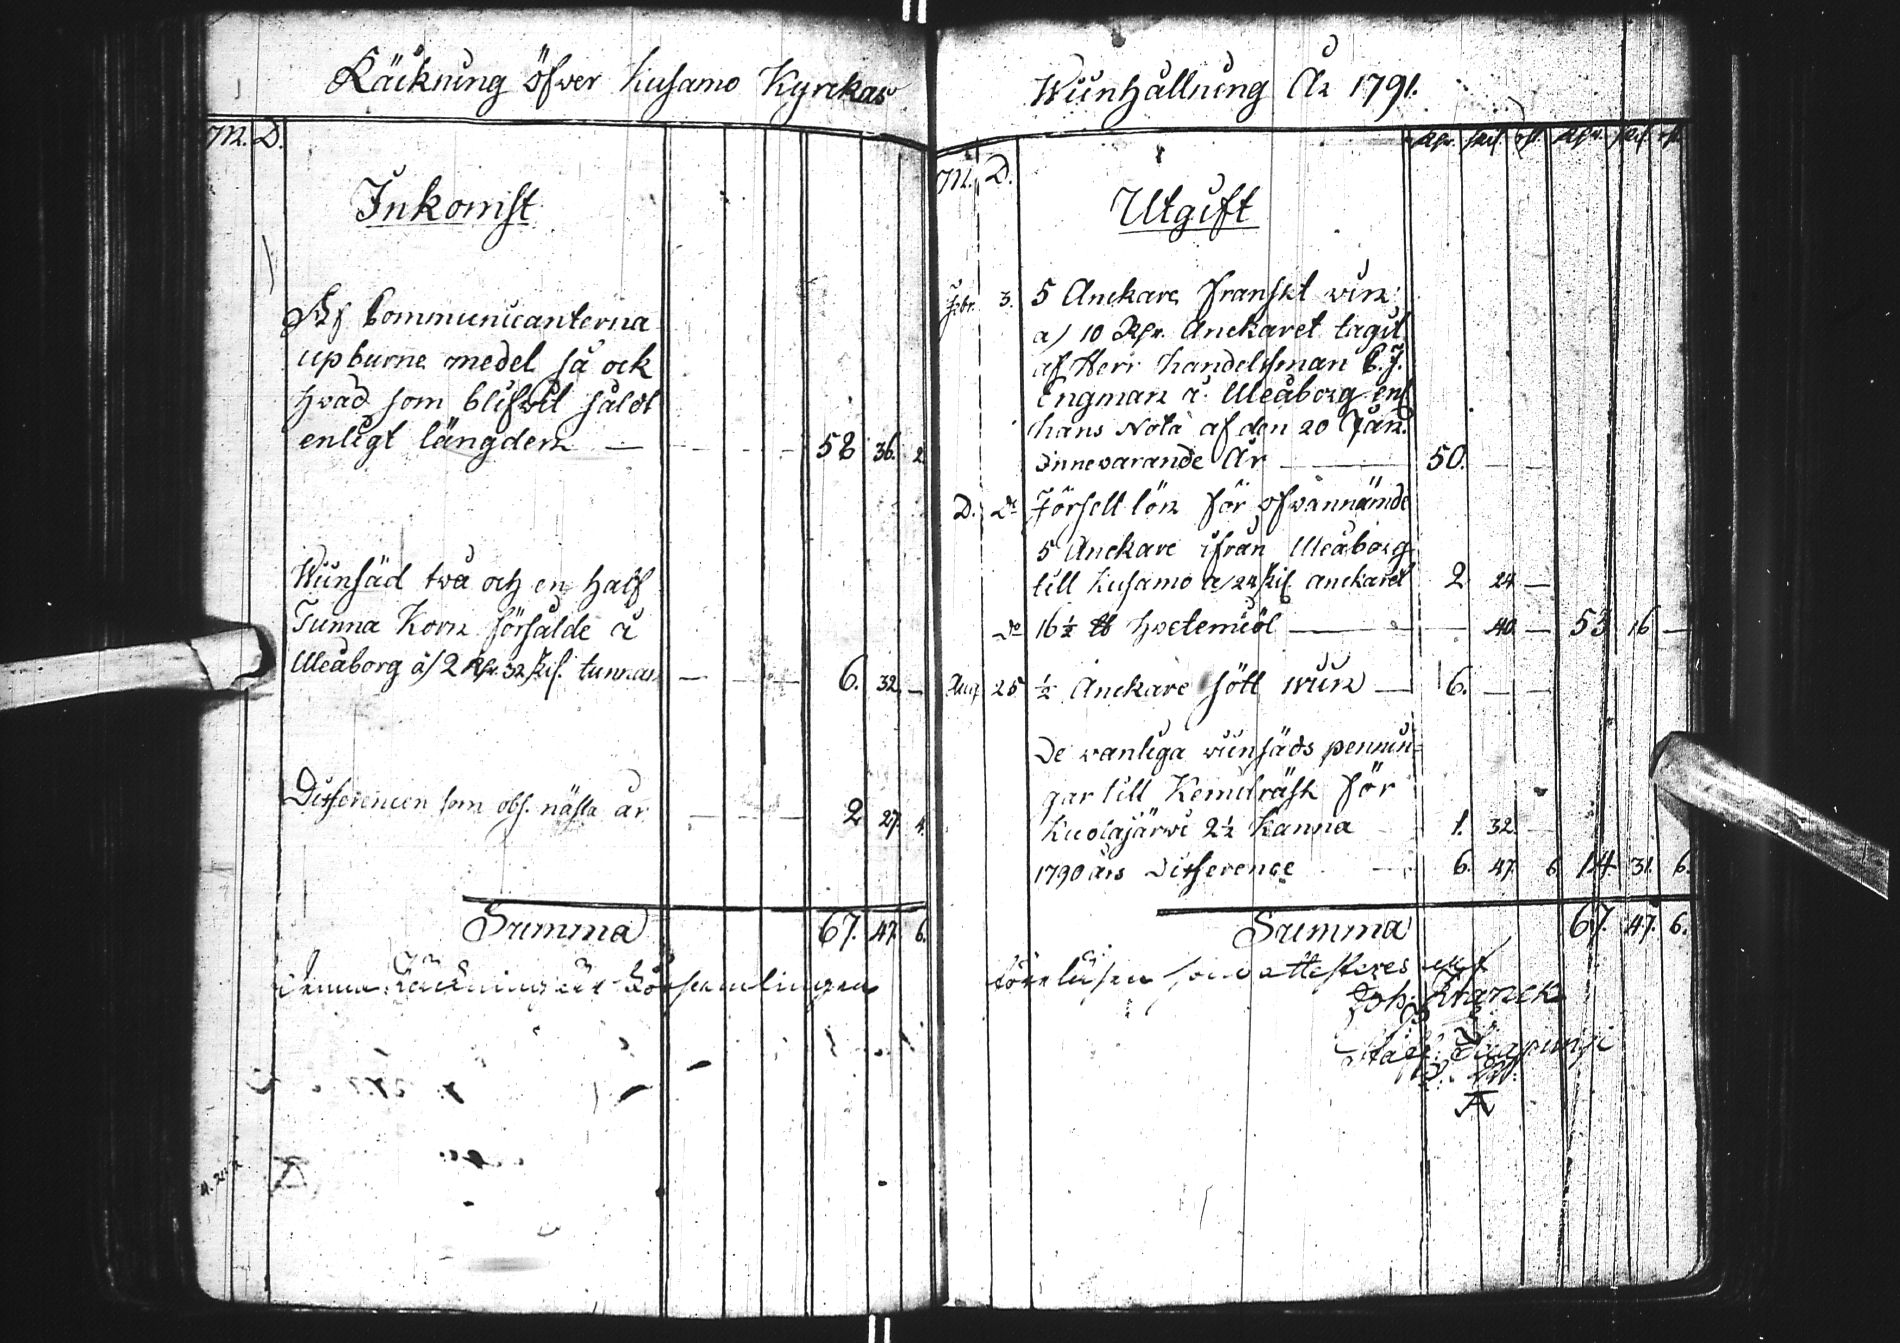 Räckning öfver Kusamo Kyrckas
M. D.
Inkomst
Af Communicanterna
upburne medel så ock
hvad som blifvit såldt
enligt längden — 58 36. 2
Wiinsäd två och en half
Tunna Korn försålde i
Uleåborg a) 2 Rdr. 32 skil. tunnan — 6. 32. —
Differencen som obs. nästa år — 2 27. 4.
Summa 67. 47. 6.
Denna Räckning är Församlingen
Wiinhållning År 1791.
Rdr. skil. rst. Rdr. skil. rst.
M. D.
Utgift
Febr. 3. 5 Anckare franskt vin
a) 10 Rdr. Anckaret tagit
af Herr handelsman C. J.
Engman i Uleåborg enl
hans Nota af den 20 Jan.
innevarande År — 50. — —
D. Do Försell lön för ofvannämde
5 Anckare ifrån Uleåborg
till Kusamo a) 24 skil anckaret 2 24 —
Do 16 ½ ℔ hvetemiöl — 40 — 53 16 —
Aug 25 ½ Anckare sött wiin — 6. — —
De vanliga viinsäds pennin=
gar till Kemiträsk för
Kuolajärvi 2 ½ Kanna 1. 32. —
1790 års Difference — 6. 47. 6 14 31. 6.
Summa 67. 47. 6.
föreläsen som attesteres af
Joh.